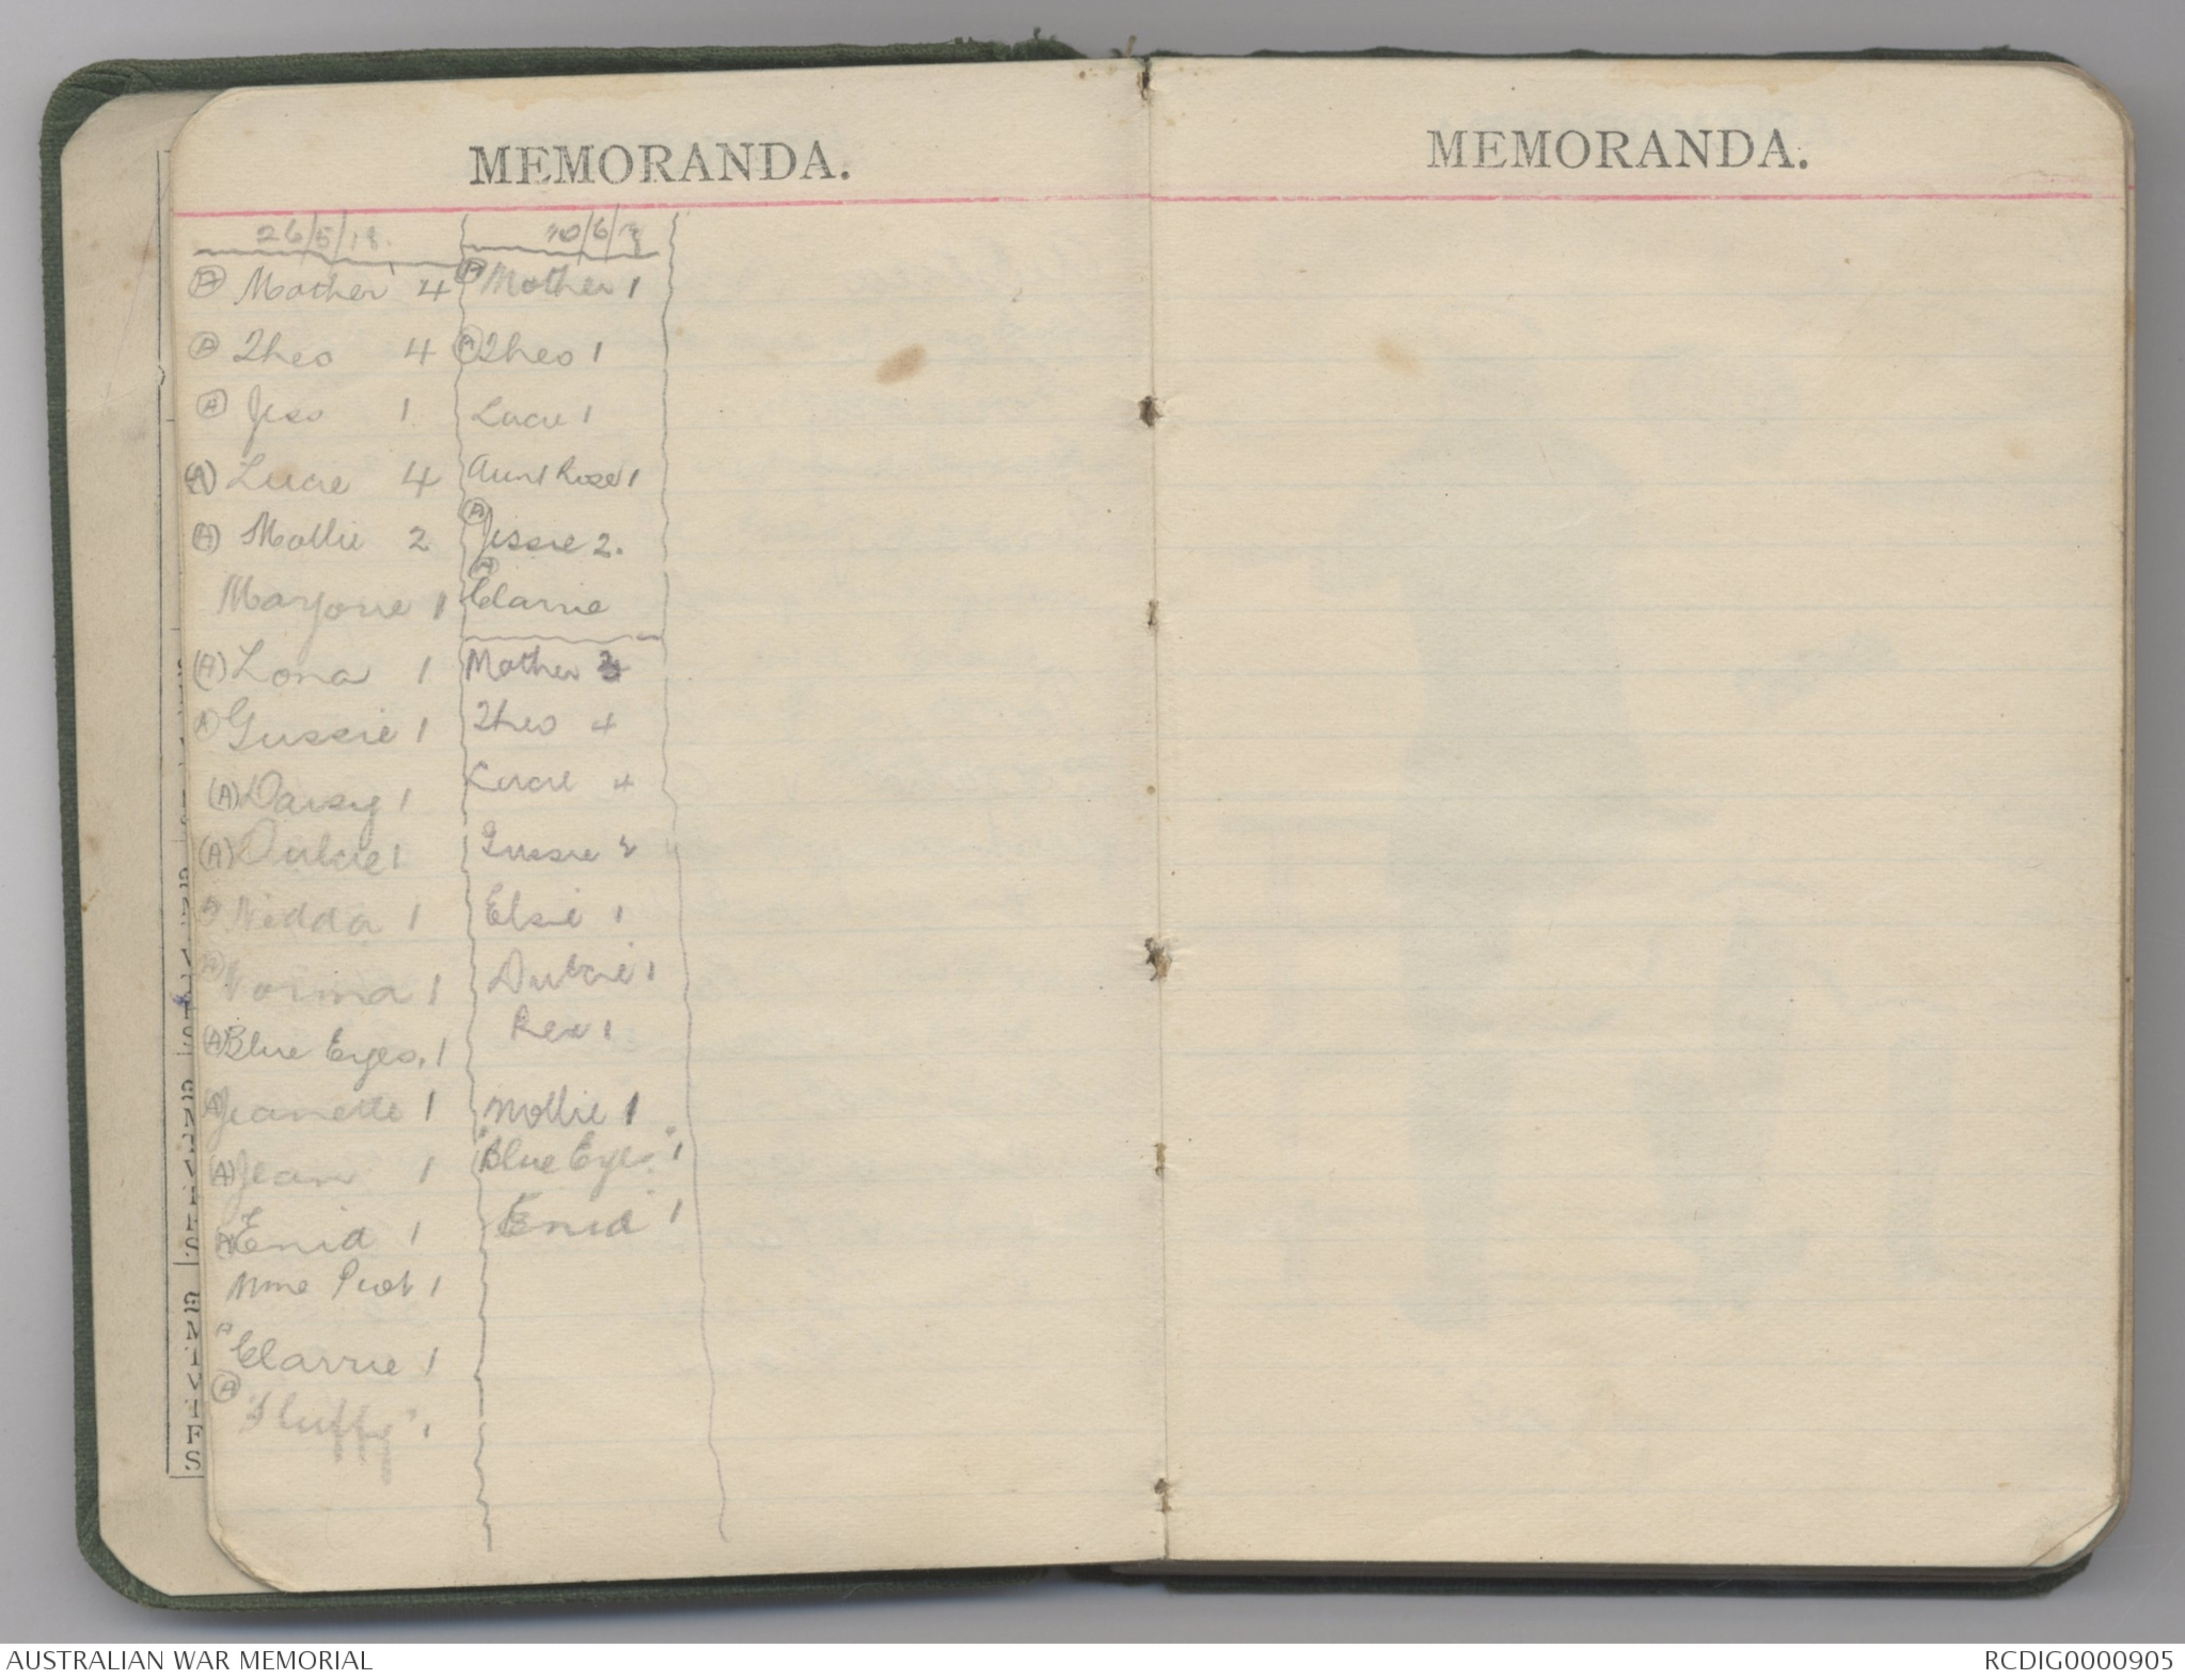 MEMORANDA.
26/5/18.
(A) Mother 4
(A) Theo 4
(A) Jess 1
(A) Lucie 4
(A) Mollie 2
Marjorie 1
(A) Lona 1
(A) Gussie 1
(A) Daisy 1
(A) Dulcie 1
Nedda 1
(A) Norma 1
(A) Blue Eyes. 1
(A) Jeanette 1
(A) Jean 1
(A) Enid 1
Mme 1
A Clarrie 1
(A) "Fluffy" 1
10/6/18
(A) Mother 1
(A) Theo 1
Lucie 1
Aunt Rose 1
(A) Jessie 2.
(A) Clarrie
Mother
Theo 4
Lucie 4
Gussie 2
Elsie 1
Dulcie 1
Rex 1
Mollie 1
"Blue Eyes" 1
Enid 1
MEMORANDA.
AUSTRALIAN WAR MEMORIAL
RCDIG0000905